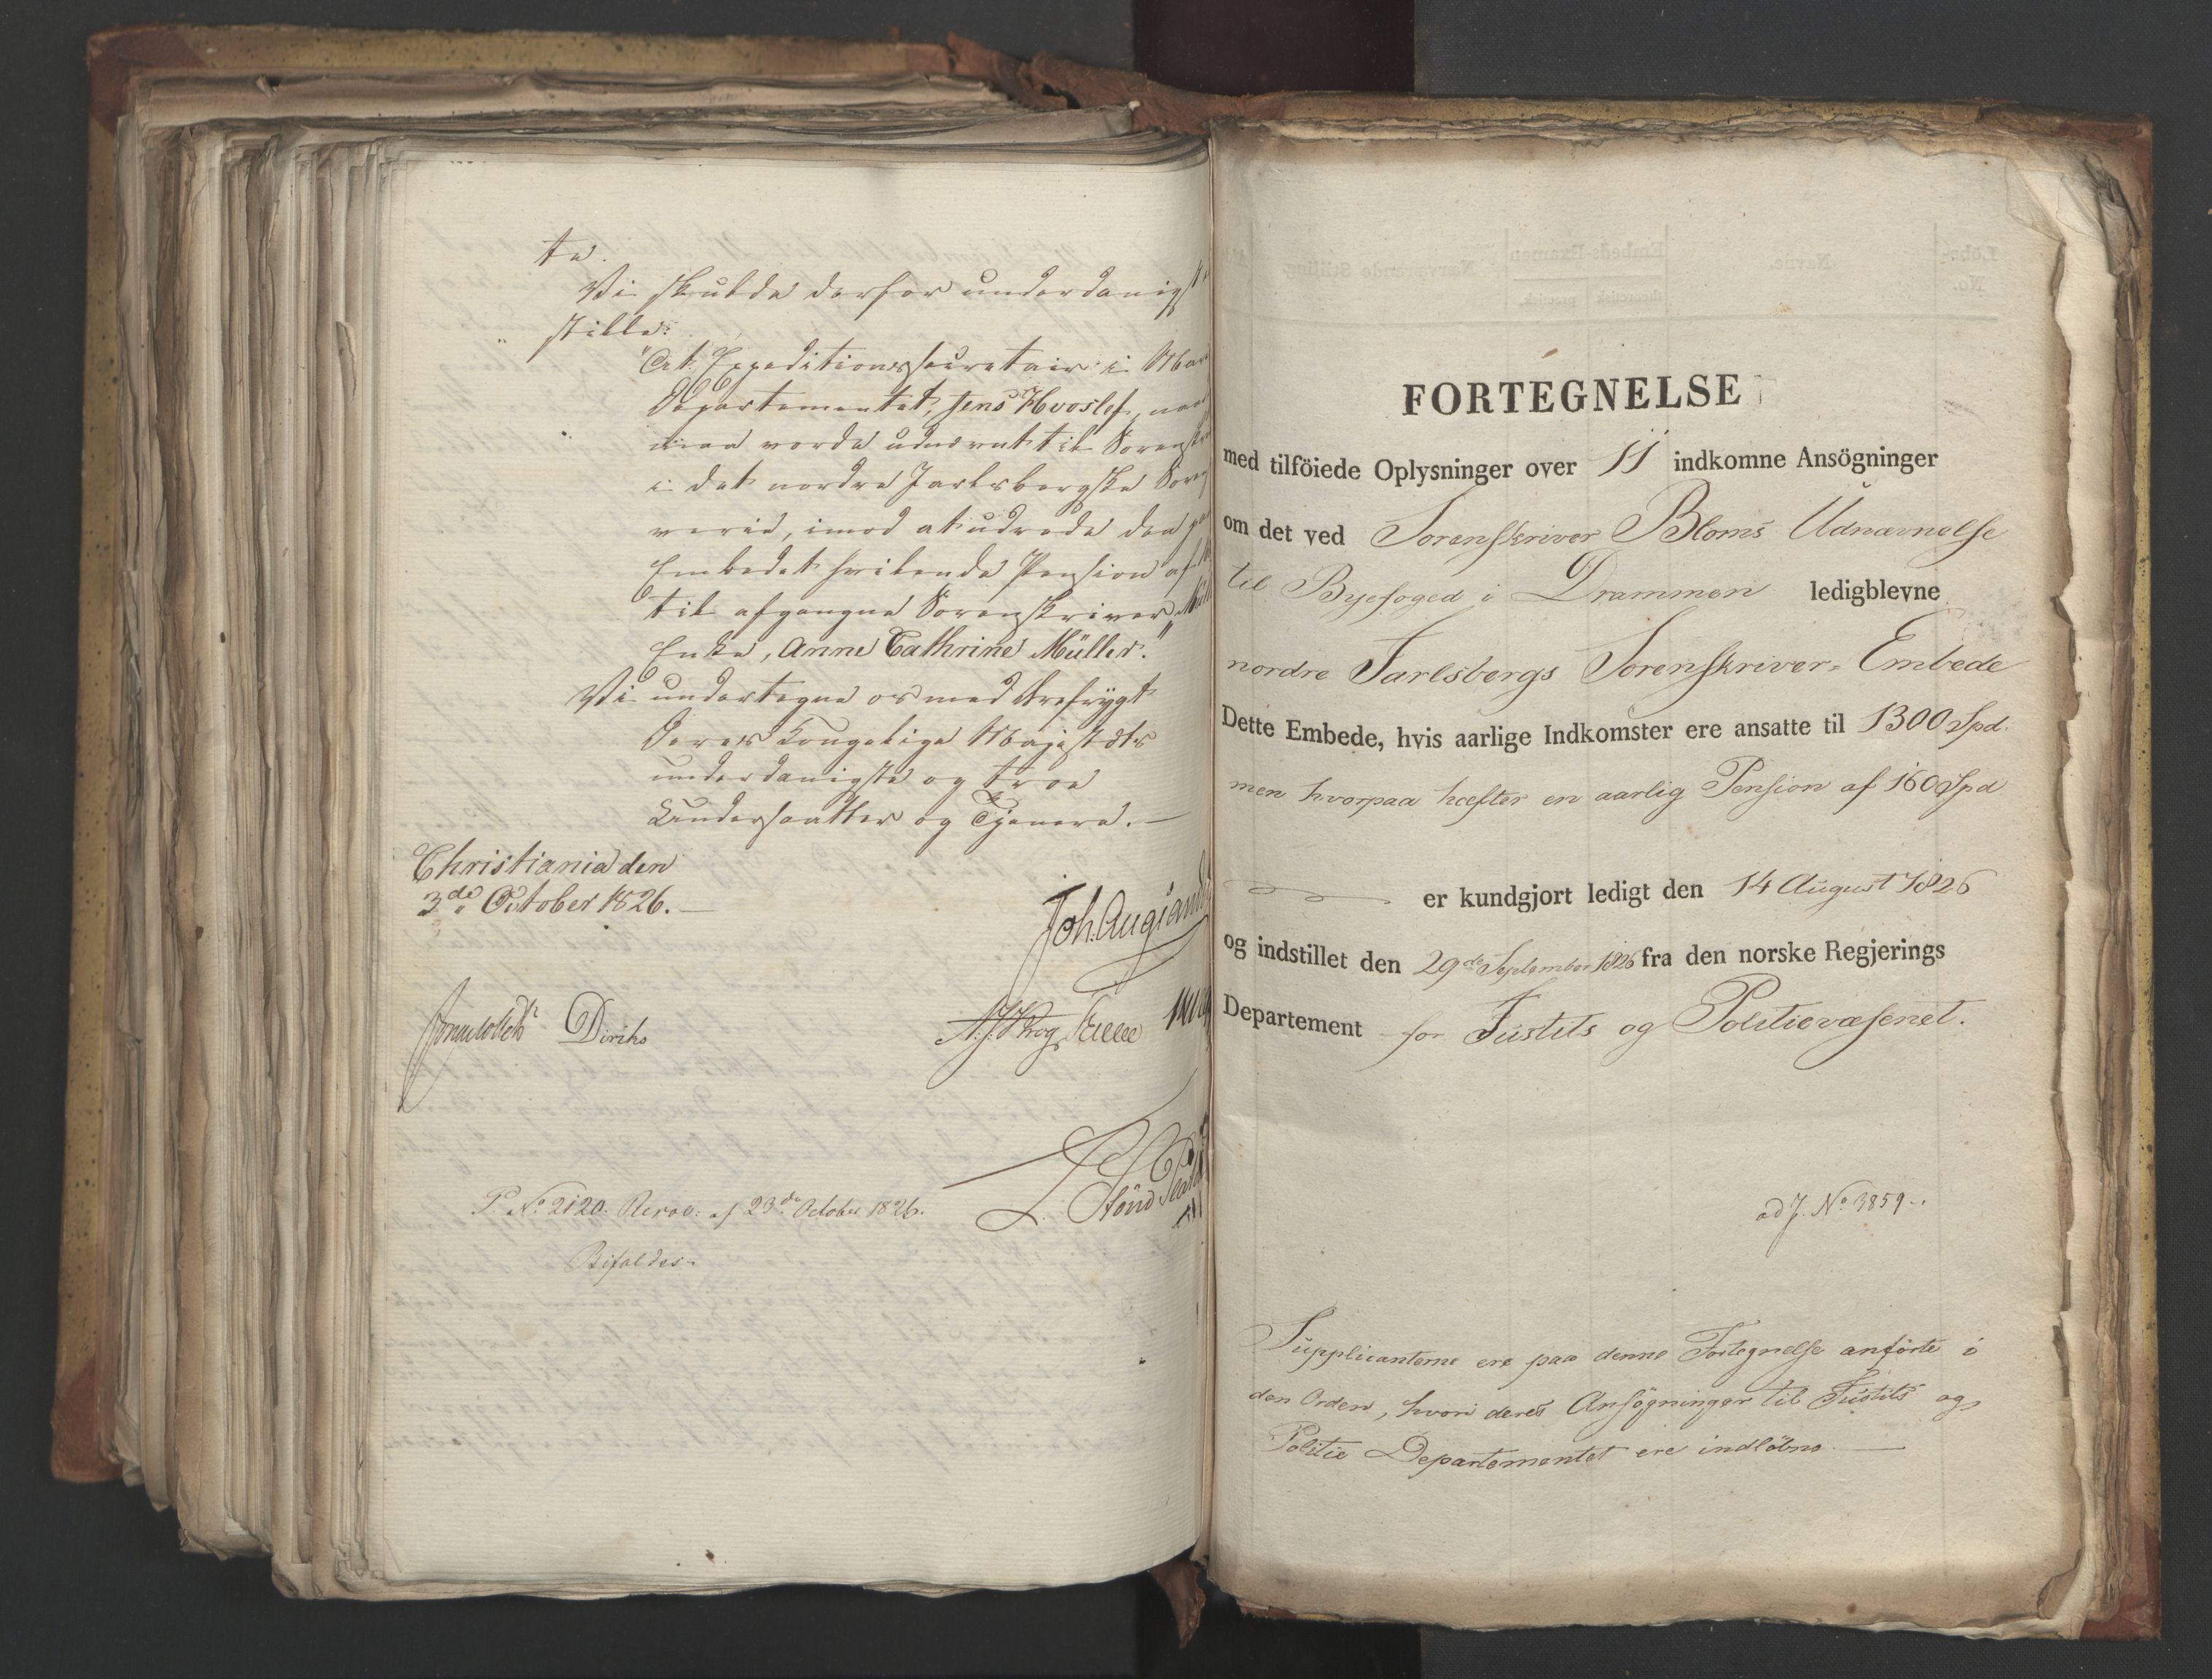 te.
Vi skulde derfor underdanigst
stille:
"At Expeditionssecretair i Mar
Departementet, Jens Hvoslef, naa
maa vorde udnævnt til Sorenskr
i det nordre Jarlsbergske Soren
verie, imod at udrede den paa
Embedet hvilende Pension af
til afgangne Sorenskriver Müll
Enke, Anne Cathrine Müller."
Vi undertegne os med Ærefrygt
Deres Kongelige Majestæts
underdanigste og troe
Undersaatter og Tjenere. —
Christiania den
3de October 1826. —
Joh. Aug: Sand
Diriks
Krog
P. No 2120. Resol: af 23de October 1826.
Bifaldes.
FORTEGNELSE
med tilföiede Oplysninger over 11 indkomne Ansögninger
om det ved Sorenskriver Bloms Udnævnelse
til Byefoged i Drammen ledigblevne
nordre Jarlsbergs Sorenskriver-Embede
Dette Embede, hvis aarlige Indkomster ere ansatte til 1300 Spd.
men hvorpaa hæfter en aarlig Pension af 160 Spd
er kundgjort ledigt den 14 August 1826
og indstillet den 29de September 1826 fra den norske Regjerings
Departement for Justits og Politievæsenet.
ad J. No 3859.
Supplicanterne ere paa denne Fortegnelse anförte i
den Orden, hvori deres Ansögninger til Justits og
Politie Departementet ere indlöbne. —